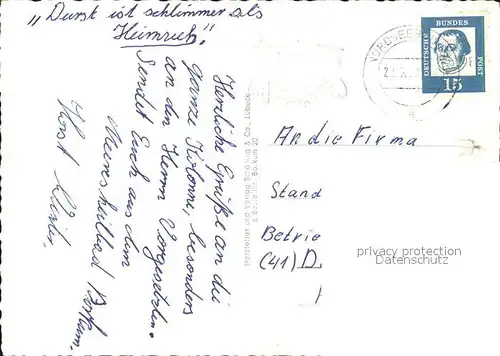 „Durst ist schlimmer als
Heimweh".
Herzliche Grüße an die
ganze Kolonne, besonders
an den Herrn Vorgesetzten.
Sendet Euch aus dem
Meeresheilbad Borkum.
Horst
Hersteller und Verlag Schöning & Co., Lübeck
Borkum 20
DEUTSCHE
BUNDES
POST
15
An die Firma
Stand
Betrie
(41) D
privacy protection
Datenschutz